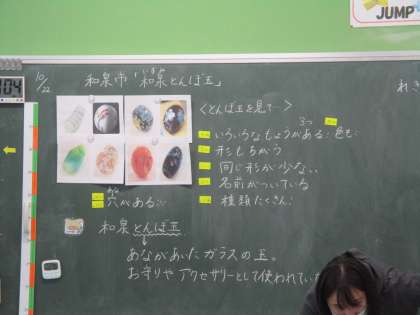 JUMP
04
10/22
和泉市「和泉とんぼ玉」
いずみ
<とんぼ玉を見て…>
3つ
いろいろなもようがある。色も
形もちがう
同じ形が少ない
名前がついている
種類たくさん!
あな
穴がある
和泉とんぼ玉
あながあいたガラスの玉。
お守りやアクセサリーとして使われていた
れき